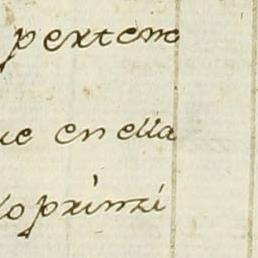 pertene
ue en ella
lo prinzi